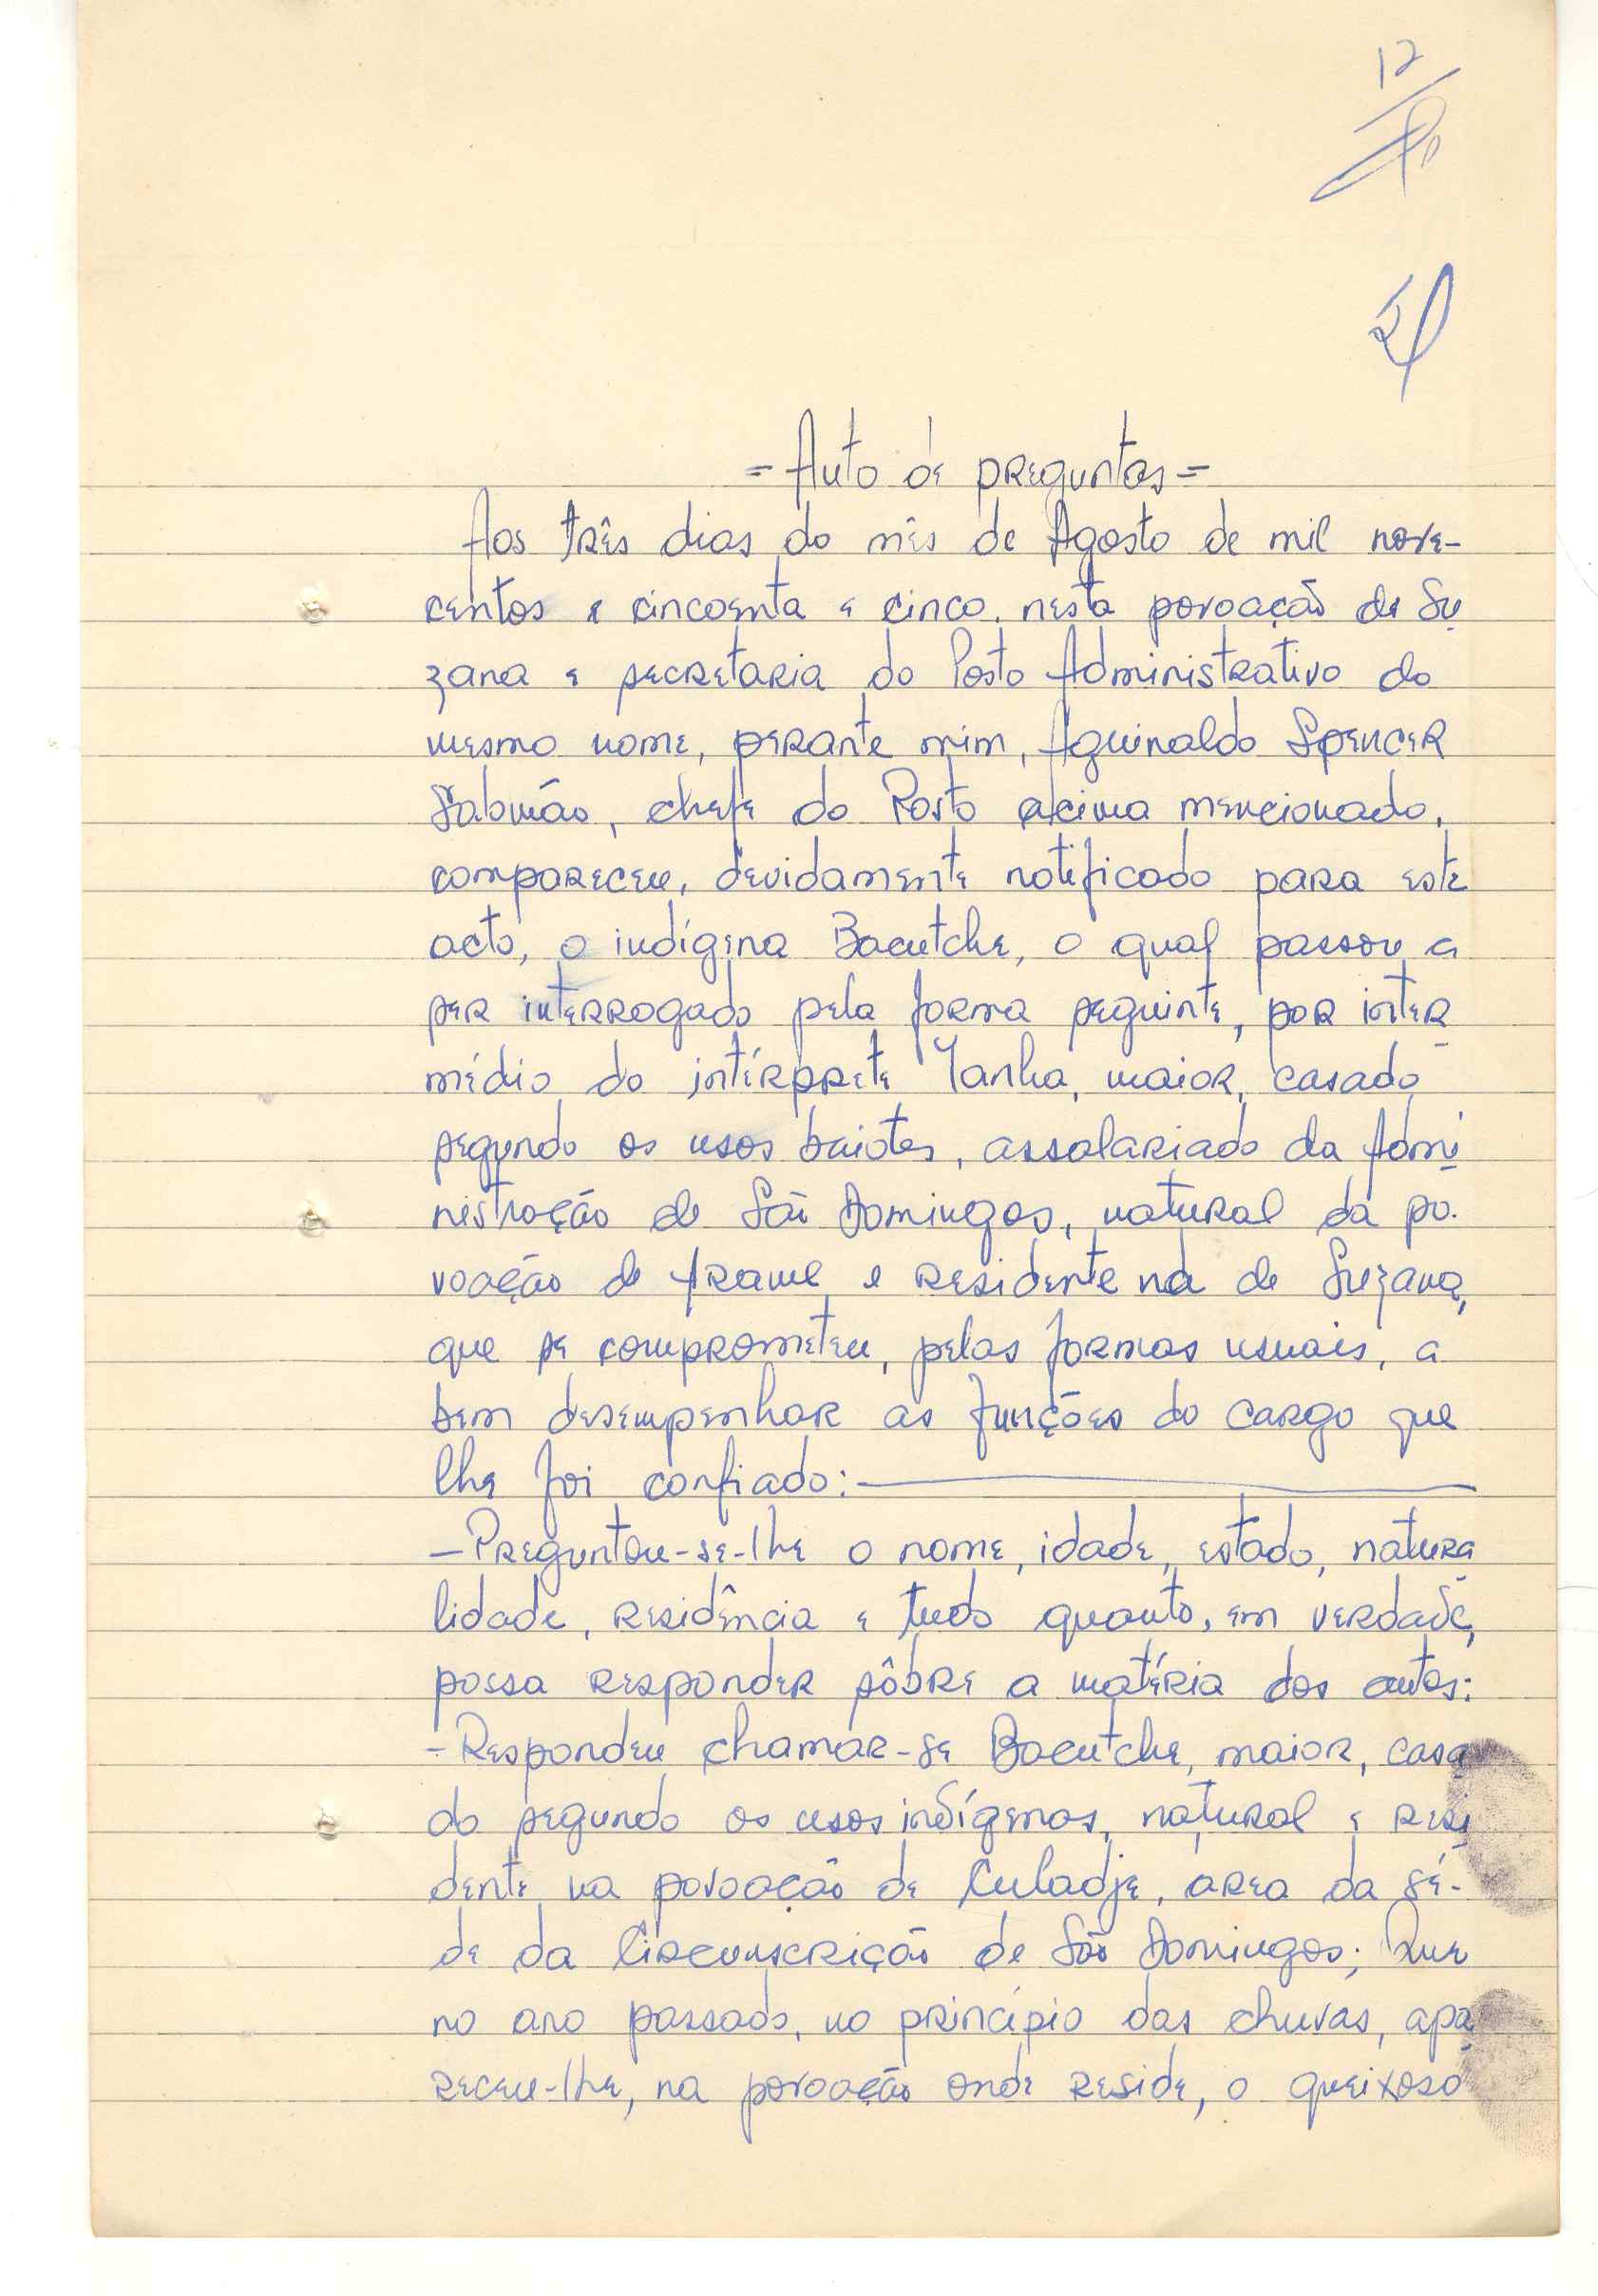 12
= Auto de preguntas =
Aos três dias do mês de Agosto de mil nove-
centos e cincoenta e cinco, nesta povoação de Su
zana e secretaria do Posto Administrativo do
mesmo nome, perante mim, Aguinaldo Spencer
Salomão, chefe do Posto acima mencionado,
compareceu, devidamente notificado para este
acto, o indígena Bacutche, o qual passou a
ser interrogado pela forma seguinte, por inter
médio do intérprete Ianha, maior, casado
segundo os usos baiotes, assalariado da Admi
nistração de São Domingos, natural da po-
voação de Arame e residente na de Suzana,
que se comprometeu, pelas formas usuais, a
bem desempenhar as funções do cargo que
lhe foi confiado:
-Preguntou-se-lhe o nome, idade, estado, natura
lidade, residência e tudo quanto, em verdade,
possa responder sôbre a matéria dos autos:
-Respondeu chamar-se Bacutche, maior, casa
do segundo os usos indígenas, natural e resi
dente na povoação de Culadje, area da sé-
de da Circunscrição de São Domingos; Que
no ano passado, no princípio das chuvas, apa
receu-lhe, na povoação onde reside, o queixoso